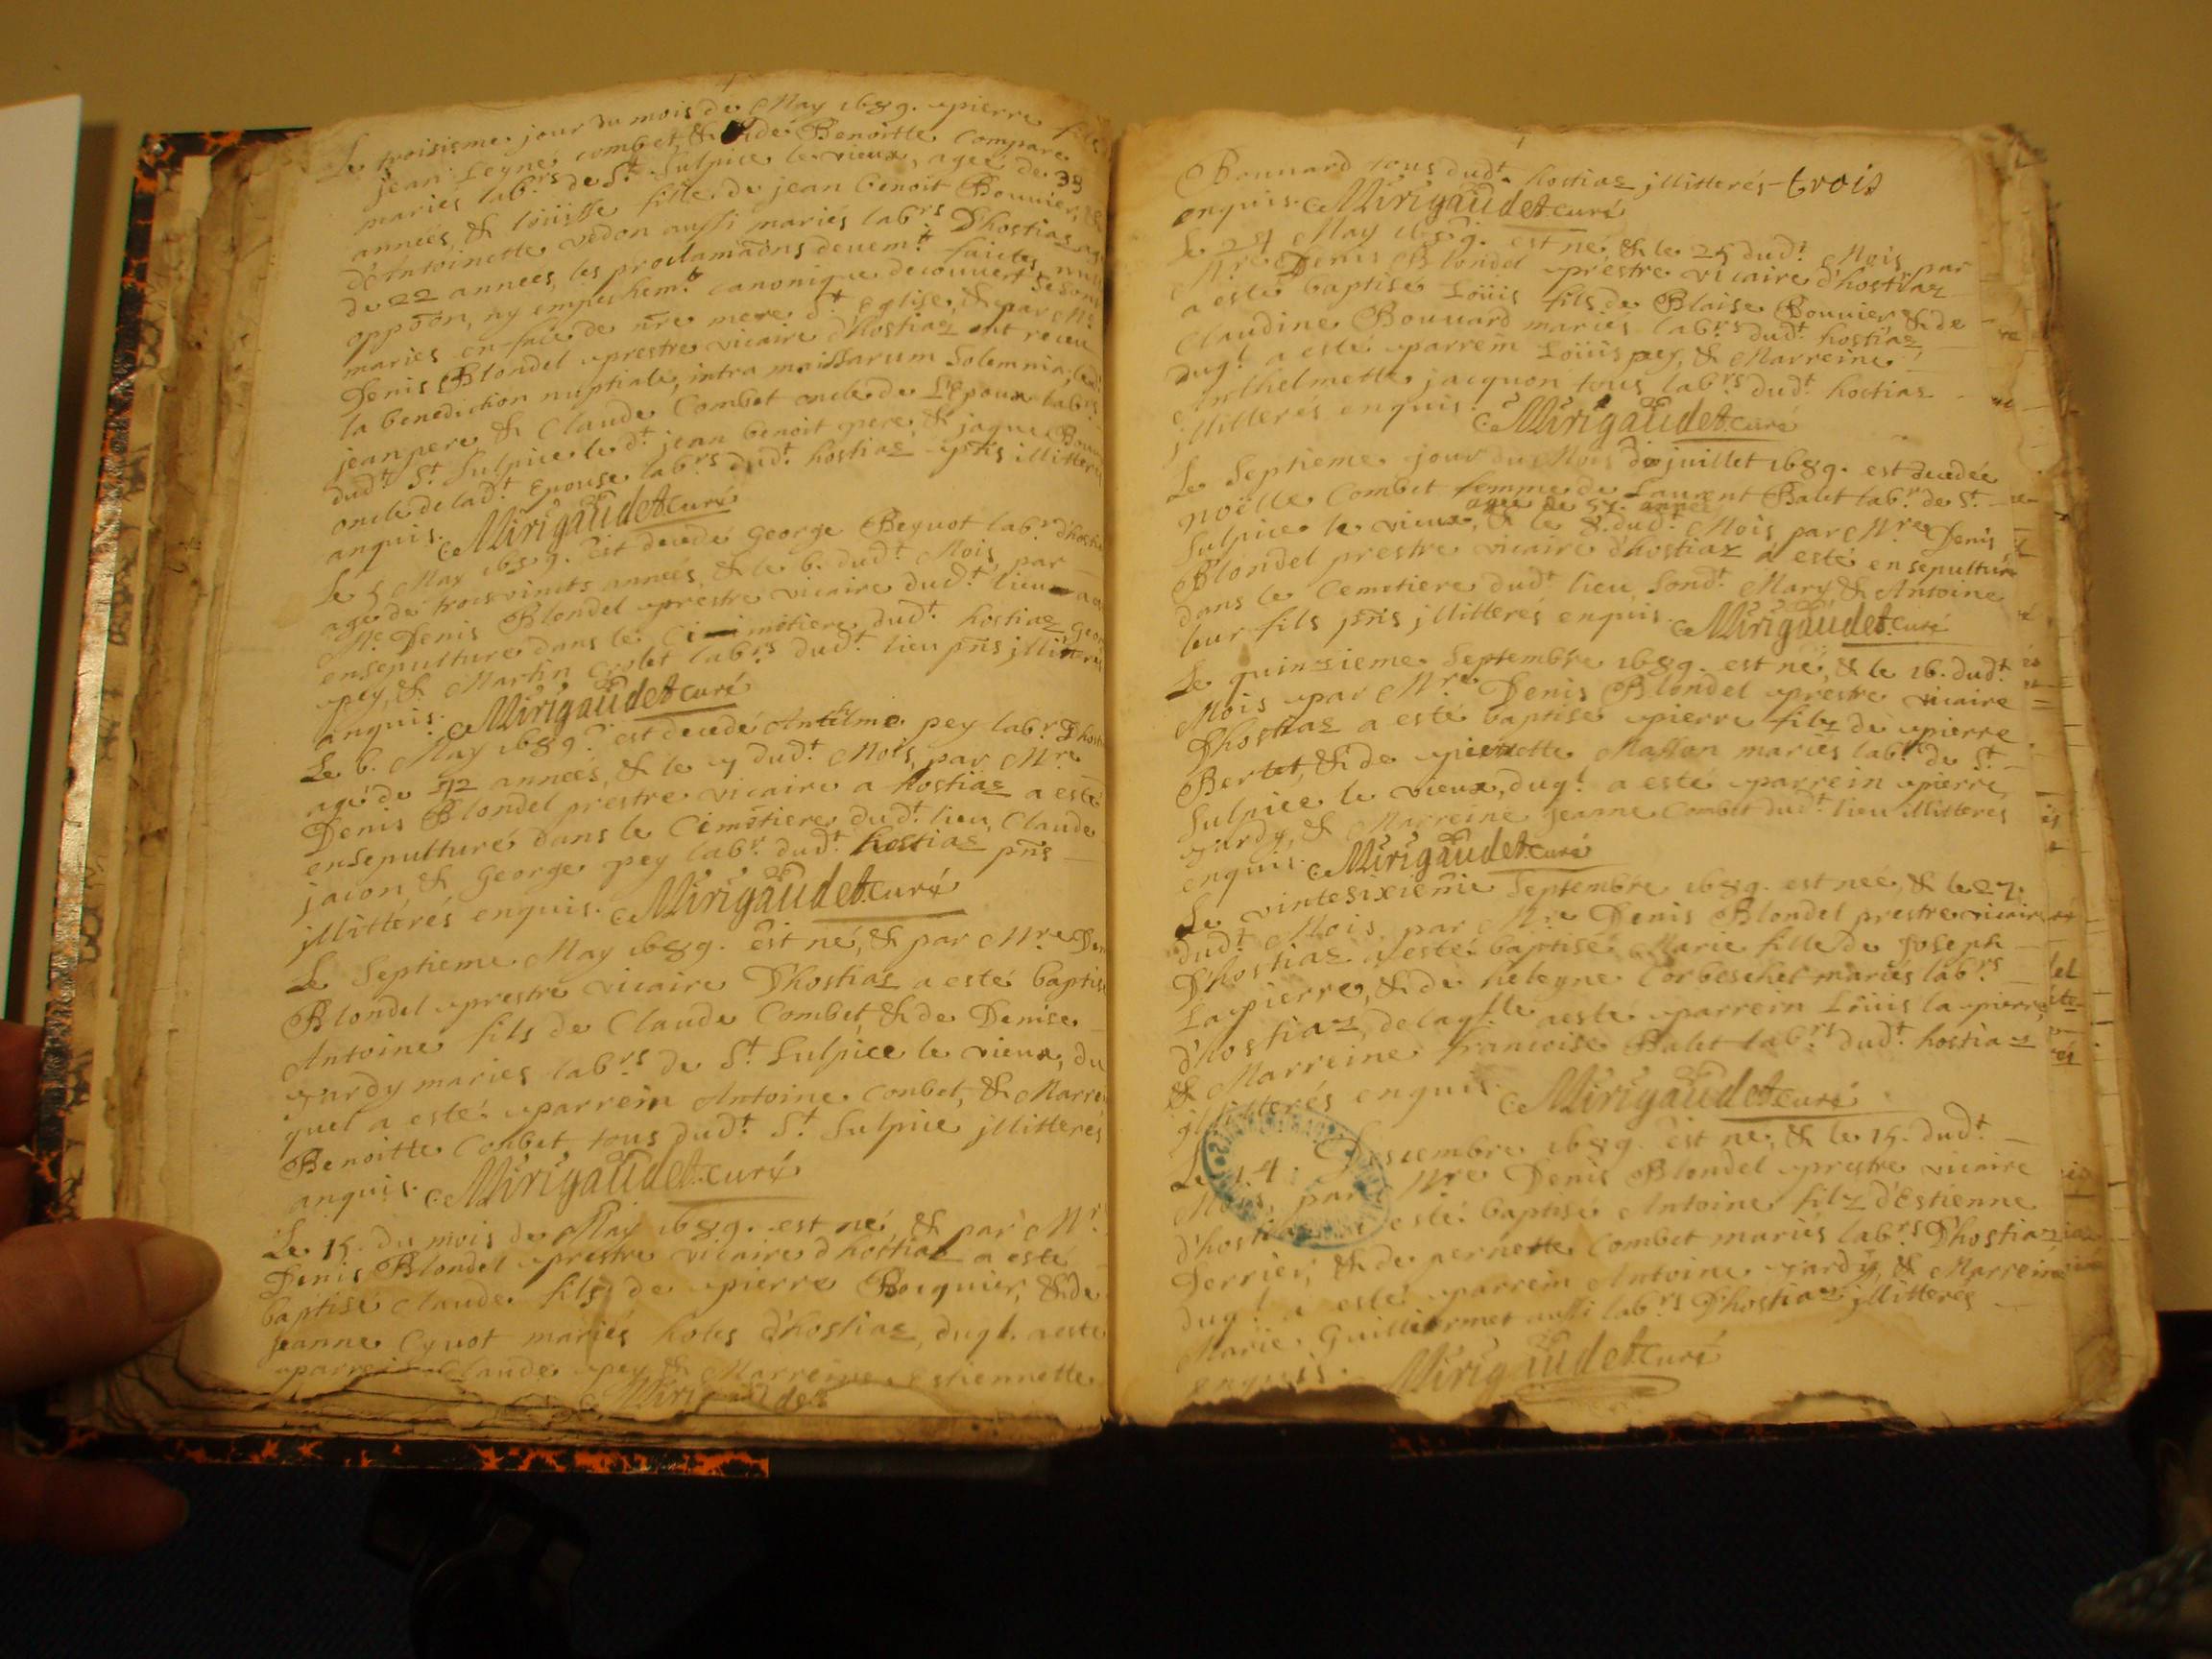 Le troisisme jour du mois de May 1689. pierre fils
jean Leyné combet, & de Benoitte Compare
mariés labrs de St Sulpice le vieux, agée de 33
années, & loüisse fille de jean benoit Bouvier, &
d'Antoinette vedon aussi mariés labrs D'hostiaz
de 22 années, les proclamaons deuemt faictes, nul
oppoon, ny empechemt canonique decouvert se sont
mariés en face de nre mere Ste Eglise, & par Mre
Denis Blondel prestre vicaire d'hostiaz ont receu
la benediction nuptiale, intra missarum Solemnia,
jean pere & Claude Combet oncle de L'Epoux labrs
dudt St Sulpice ledt jean benoit pere, & jaque Bouvi
oncle de ladt Epouse labrs dudt hostiaz pñs illitterés
anquis. Mirigaudet curé
Le 5 May 1689. est decedé George Beguot labr d'hosti
agé de trois vints années, & le 6. dudt Mois, par
Mre Denis Blondel prestre vicaire dudt lieu a
ensepulturé dans le Cimitiere dudt hostiaz, Geor
pey, & Martin labrs dudt lieu pñs jllitterés
anquis. Mirigaudet curé
Le 6. May 1689. est decedé Anthelme pey labr D'hosti
agé de 92 années, & le 7 dudt Mois, par Mre
Denis Blondel prestre vicaire a hostiaz a esté
ensepulturé dans le Cimitiere dudt lieu, Claude
jacon, & George pey labr dudt hostiaz pñs
jllitterés enquis. Mirigaudet curé
Le Septieme May 1689. est né, & par Mre Den
Blondel prestre vicaire D'hostiaz a esté baptisé
Antoine fils de Claude Combet, & de Denise
gardy mariés labrs de St Sulpice le vieux, du
quel a esté parrein Antoine Combet, & Marre
Benoitte Combet tous dudt St Sulpice jllitterés
anquis. Mirigaudet curé
Le 15. du mois de May 1689. est né, & par Mr
Denis Blondel prestre vicaire d'hostiaz a esté
baptisé Claude fils de pierre Bocquier, & de
Jeanne Cyvot mariés d'hostiaz, dugl. a esté
parrein Claude pey & Marreine Estiennette
Mirigaudet
Bouvard tous dudt hostiaz jllitterés trois
enquis. Mirigaudet curé
Le 24 May 1689. est né, & le 25 dudt Mois par
Mre Denis Blondel prestre vicaire d'hostiaz
a esté baptisé Loüis fils de Blaise Bouvier & de
Claudine Bouvard mariés labrs dudt hostiaz
dugl a esté parrein Loüis pey, & Marreine
Anthelmette jacquon tous labrs dudt hostiaz
jllitterés enquis. Mirigaudet curé
Le Septieme jour du Mois de juillet 1689. est decedée
noëlle Combet femme de Laurent Balet labr de St
agée de 55 années
Sulpice le vieux, & le 8. dudt Mois par Mre Denis
Blondel prestre vicaire d'hostiaz a esté ensepulturé
dans le Cemetiere dudt lieu, Sondt Mary, & Antoine
leur fils pñs jllitterés enquis. Mirigaudet curé
Le quinsieme Septembre 1689. est né, & le 16. dudt
Mois par Mre Denis Blondel prestre vicaire
D'hostiaz a esté baptisé pierre filz de pierre
Bertet, & de pierrette Masson mariés labr de St
Sulpice le vieux, dugl a esté parrein pierre
gardy, & Marreine Jeanne Combet dudt lieu illitterés
enquis. Mirigaudet curé
Le vintesixieme Septembre 1689. est neé, & le 27.
dudt Mois par Mre Denis Blondel prestre vicaire
D'hostiaz a esté baptisé Marie fille de Joseph
Lapierre, & de heleyne Corbeschel mariés labrs
d'hostiaz, de laglle a esté parrein Loüis la pierre,
& Marreine francoise Balet labrs dudt hostiaz
jllitterés enquis. Mirigaudet curé
Le 14. Descembre 1689. est né, & le 15. dudt
Mois, par Mre Denis Blondel prestre vicaire
d'hostiaz a esté baptisé Antoine filz d'Estienne
Serrier, & de pernette Combet mariés labrs D'hostiaz
dugl a esté parrein Antoine gardy, & Marreine
Marie Guillermet aussi labrs D'hostiaz jllitterés
enquis. Mirigaudet curé